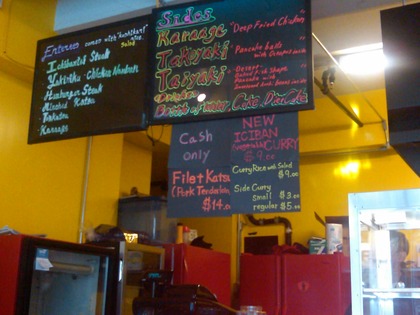 Entrees comes with
Salad
Steak
Yakiniku - Chicken
Hamburger Steak
Katsu
Tonkatsu
Karaage
Sides
Karaage "Deep Fried Chicken"
Takoyaki "Pancake balls
with Octopus inside
Taiyaki "Dessert
Baked Fish Shape
Pancake with
Sweetened Bean Paste inside
Drinks
Bottle of Water, Coke, Diet Coke
Cash
only
Filet Katsu
(Pork Tenderloin)
$14.00
NEW
ICIBAN
CURRY
$9.00
Curry Rice with Salad
$9.00
Side Curry
small $3.00
regular $5.00